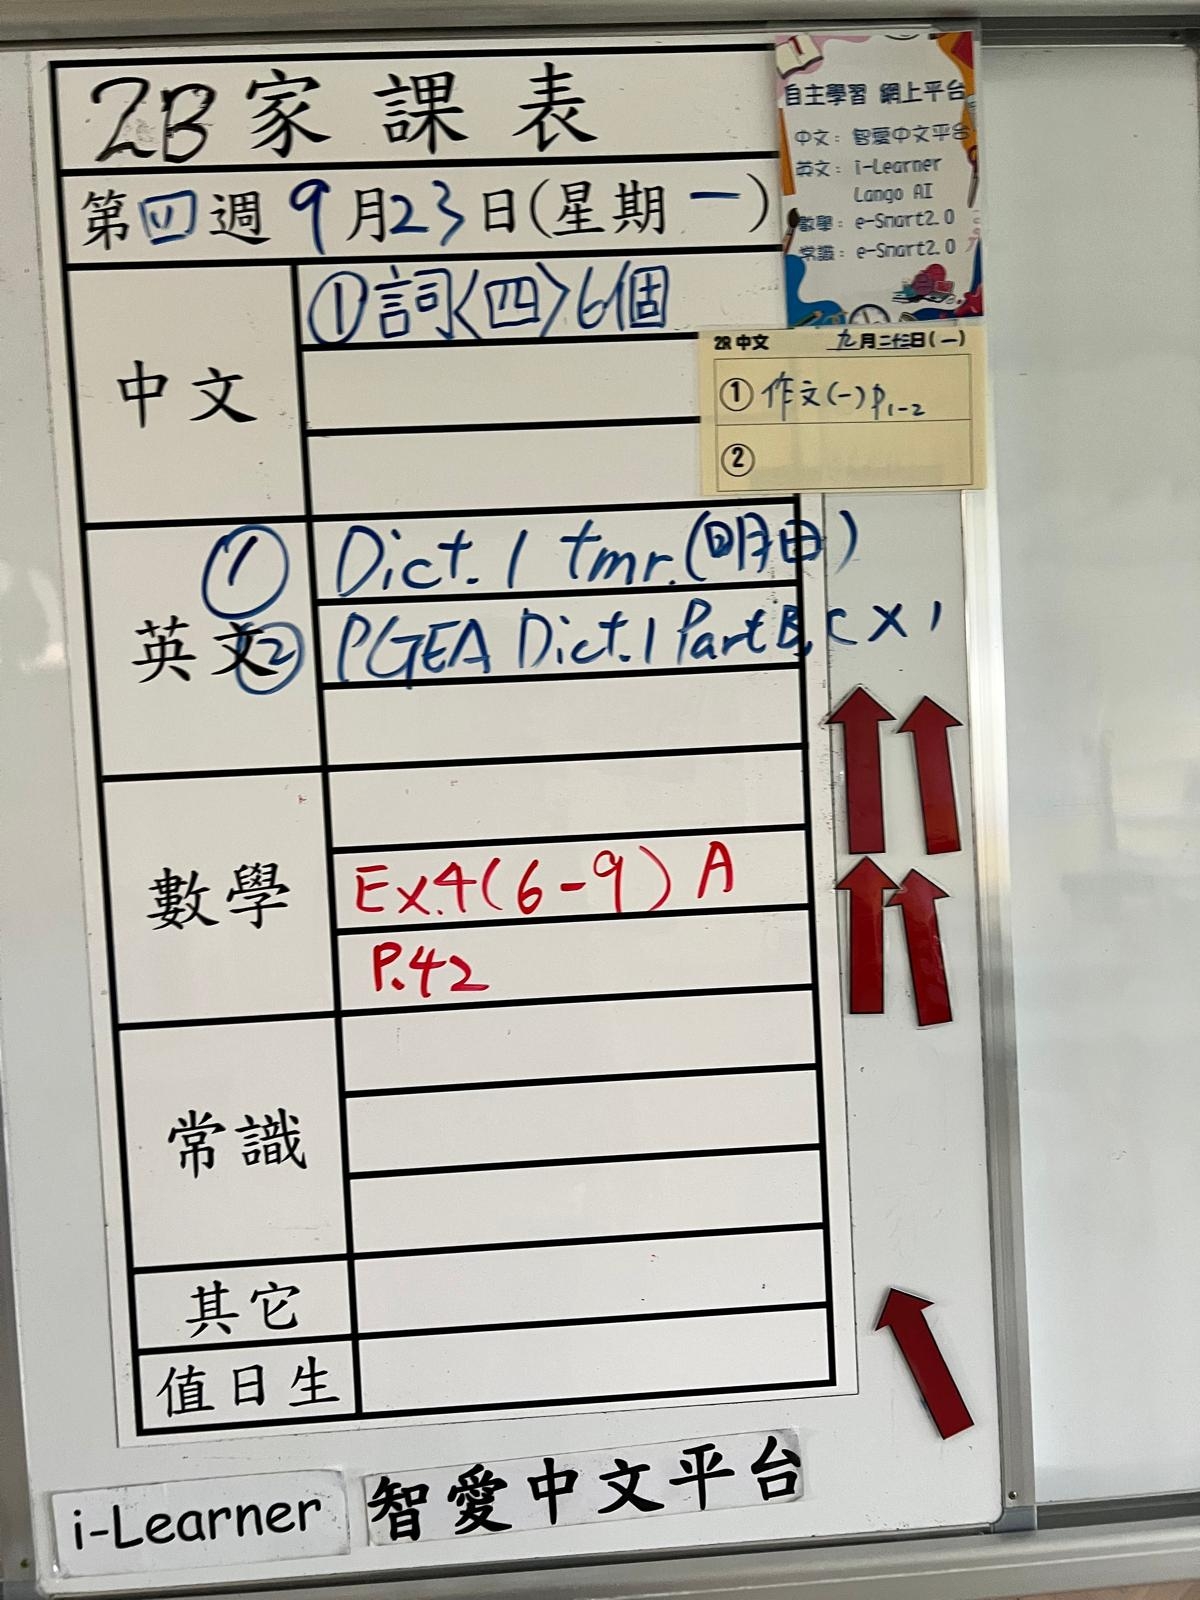 2B家課表
第四週9月23日(星期一)
自主學習 網上平台
中文：智愛中文平台
英文：i-Learner
Lango AI
數學：e-Smart2.0
常識：e-Smart2.0
中文
①詞〈四〉6個
2R 中文 九月二十三日(一)
①作文(一)P1-2
②
英文
① Dict. 1 tmr.(明日)
② PGEA Dict.1 Part B, C X 1
數學
Ex.4(6-9) A
P.42
常識
其它
值日生
i-Learner 智愛中文平台